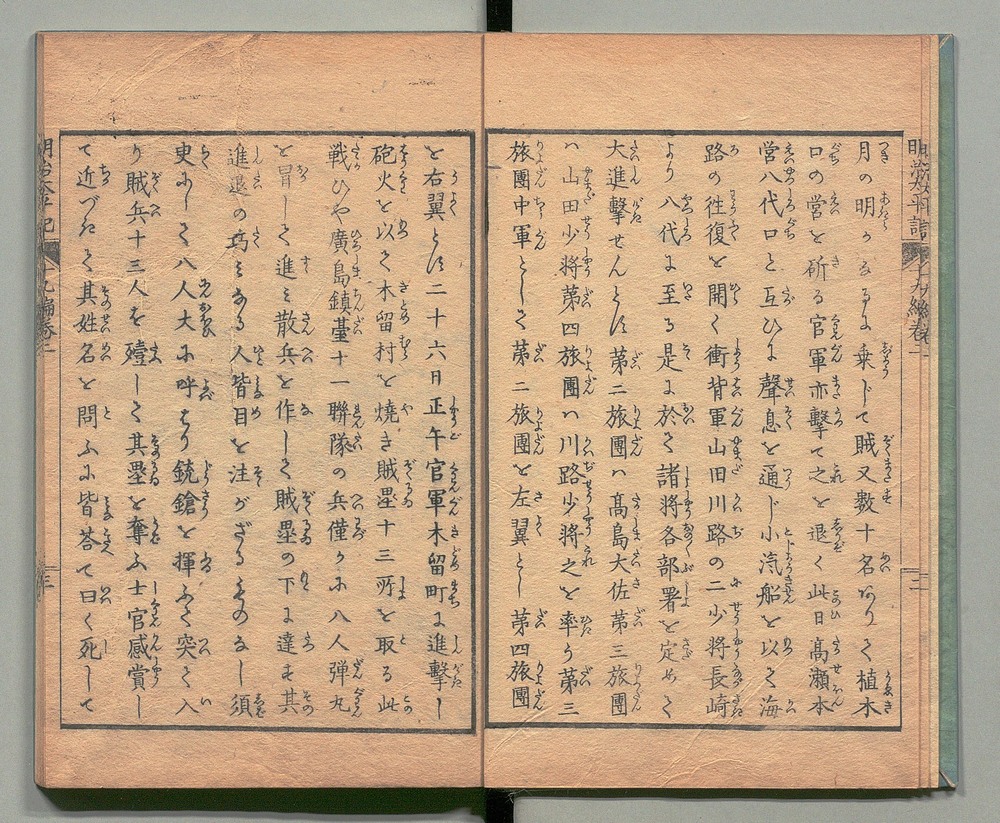 月の明かなるに乗じて賊又数十名ありて植木
口の営を斫る官軍亦撃て之を退く此日髙瀬本
営八代口と互ひに聲息を通じ小汽船を以て海
路の往復を開く衝背軍山田川路の二少将長﨑
より八代に至る是に於て諸将各部署を定めて
大進撃せんとす第二旅團ハ髙島大佐第三旅團
ハ山田少将第四旅團ハ川路少将之を率う第三
旅團中軍として第二旅團を左翼とし第四旅團
を右翼とす二十六日正午官軍木留町に進撃し
砲火を以て木留村を燒き賊壘十三所を取る此
戦ひや廣島鎮䑓十一聯隊の兵僅かに八人弾丸
を冒して進ミ散兵を作して賊壘の下に達す其
進退の巧ミなる人皆目を注がざるものなし須
史にして八人大に呼はり銃鎗を揮ふて突て入
り賊兵十三人を殪して其壘を奪ふ士官感賞し
て近づきて其姓名を問ふに皆荅て曰く死して